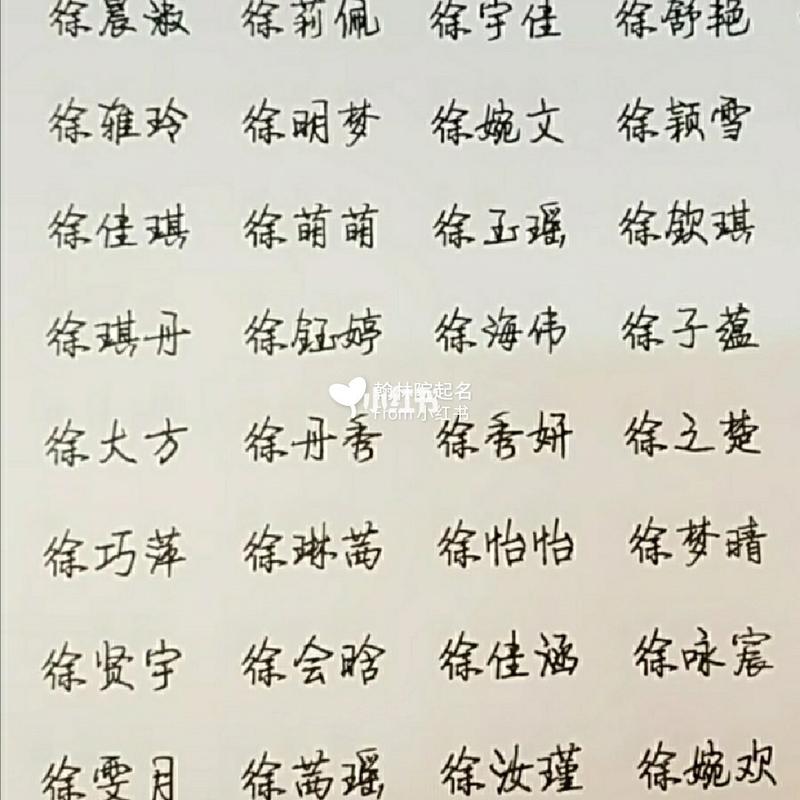 徐晨淑 徐莉佩 徐宇佳 徐舒艳
徐雅玲 徐明梦 徐婉文 徐颖雪
徐佳琪 徐萌萌 徐玉瑶 徐钦琪
徐琪丹 徐钰婷 徐海伟 徐子蕴
翰林院起名
小红书
From 小红书
徐大方 徐丹秀 徐秀妍 徐之楚
徐巧萍 徐琳茜 徐怡怡 徐梦晴
徐贤宇 徐会晗 徐佳涵 徐咏宸
徐雯月 徐茜瑶 徐汝瑾 徐婉欢